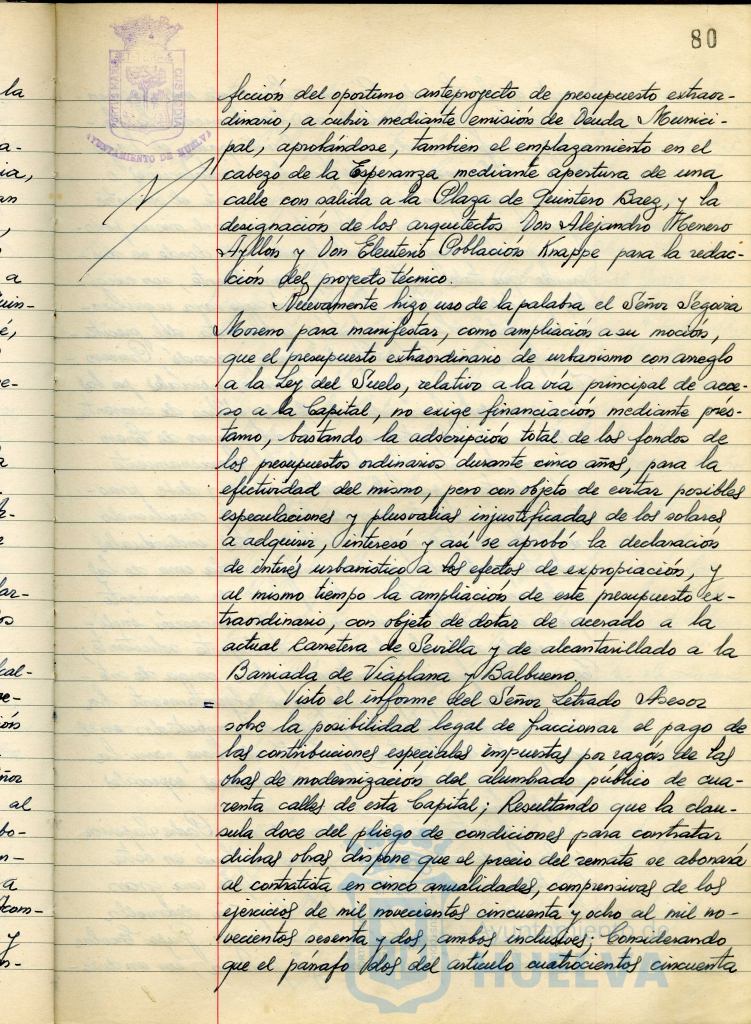 80
AYUNTAMIENTO DE HUELVA
fección del oportuno anteproyecto de presupuesto extraor-
dinario, a cubrir mediante emisión de Deuda Munici-
pal, aprobándose, tambien el emplazamiento en el
cabezo de la Esperanza mediante apertura de una
calle con salida a la Plaza de Quintero Baez, y la
designación de los arquitectos Don Alejandro Herrero
Ayllón y Don Eleuterio Población Knappe para la redac-
ción del proyecto técnico.
Nuevamente hizo uso de la palabra el Señor Segovia
Moreno para manifestar, como ampliación a su moción,
que el presupuesto extraordinario de urbanismo con arreglo
a la Ley del Suelo, relativo a la vía principal de acce-
so a la Capital, no exige financiación mediante prés-
tamo, bastando la adscripción total de los fondos de
los presupuestos ordinarios durante cinco años, para la
efectividad del mismo, pero con objeto de evitar posibles
especulaciones y plusvalias injustificadas de los solares
a adquirir, interesó y así se aprobó la declaración
de interés urbanistico a los efectos de expropiación, y
al mismo tiempo la ampliación de este presupuesto ex-
traordinario, con objeto de dotar de acerado a la
actual Carretera de Sevilla y de alcantarillado a la
Barriada de Viaplana y Balbueno.
= Visto el informe del Señor Letrado Asesor
sobre la posibilidad legal de fraccionar el pago de
las contribuciones especiales impuestas por razón de las
obras de modernización del alumbrado público de cua-
renta calles de esta Capital; Resultando que la clau-
sula doce del pliego de condiciones para contratar
dichas obras dispone que el precio del remate se abonará
al contratista en cinco anualidades, comprensivas de los
ejercicios de mil novecientos cincuenta y ocho al mil no-
vecientos sesenta y dos, ambos inclusives; Considerando
que el párrafo dos del artículo cuatrocientos cincuenta
Ayuntamiento de
HUELVA